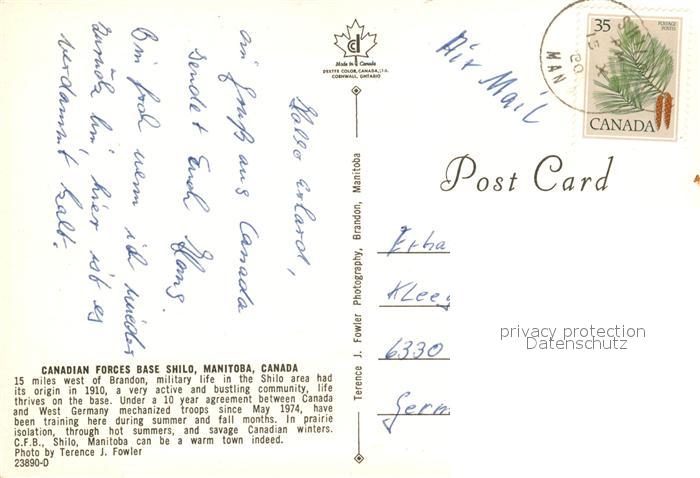 Hallo Erhard,
ein Gruß aus Canada
sendet Euch Hans.
Bin froh wenn ich wieder
zurück bin, hier ist es
verdammt kalt.
CANADIAN FORCES BASE SHILO, MANITOBA, CANADA
15 miles west of Brandon, military life in the Shilo area had
its origin in 1910, a very active and bustling community, life
thrives on the base. Under a 10 year agreement between Canada
and West Germany mechanized troops since May 1974, have
been training here during summer and fall months. In prairie
isolation, through hot summers, and savage Canadian winters.
C.F.B., Shilo, Manitoba can be a warm town indeed.
Photo by Terence J. Fowler
23890-D
Made in Canada
DEXTER COLOR, CANADA, LTD.
CORNWALL, ONTARIO
Terence J. Fowler Photography, Brandon, Manitoba
Air Mail
MAN
35
POSTAGE
POSTES
CANADA
Post Card
Erha
Klee
6330
Germ
privacy protection
Datenschutz